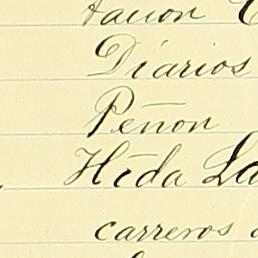 Diarios
Peñon
Hda La
carreros